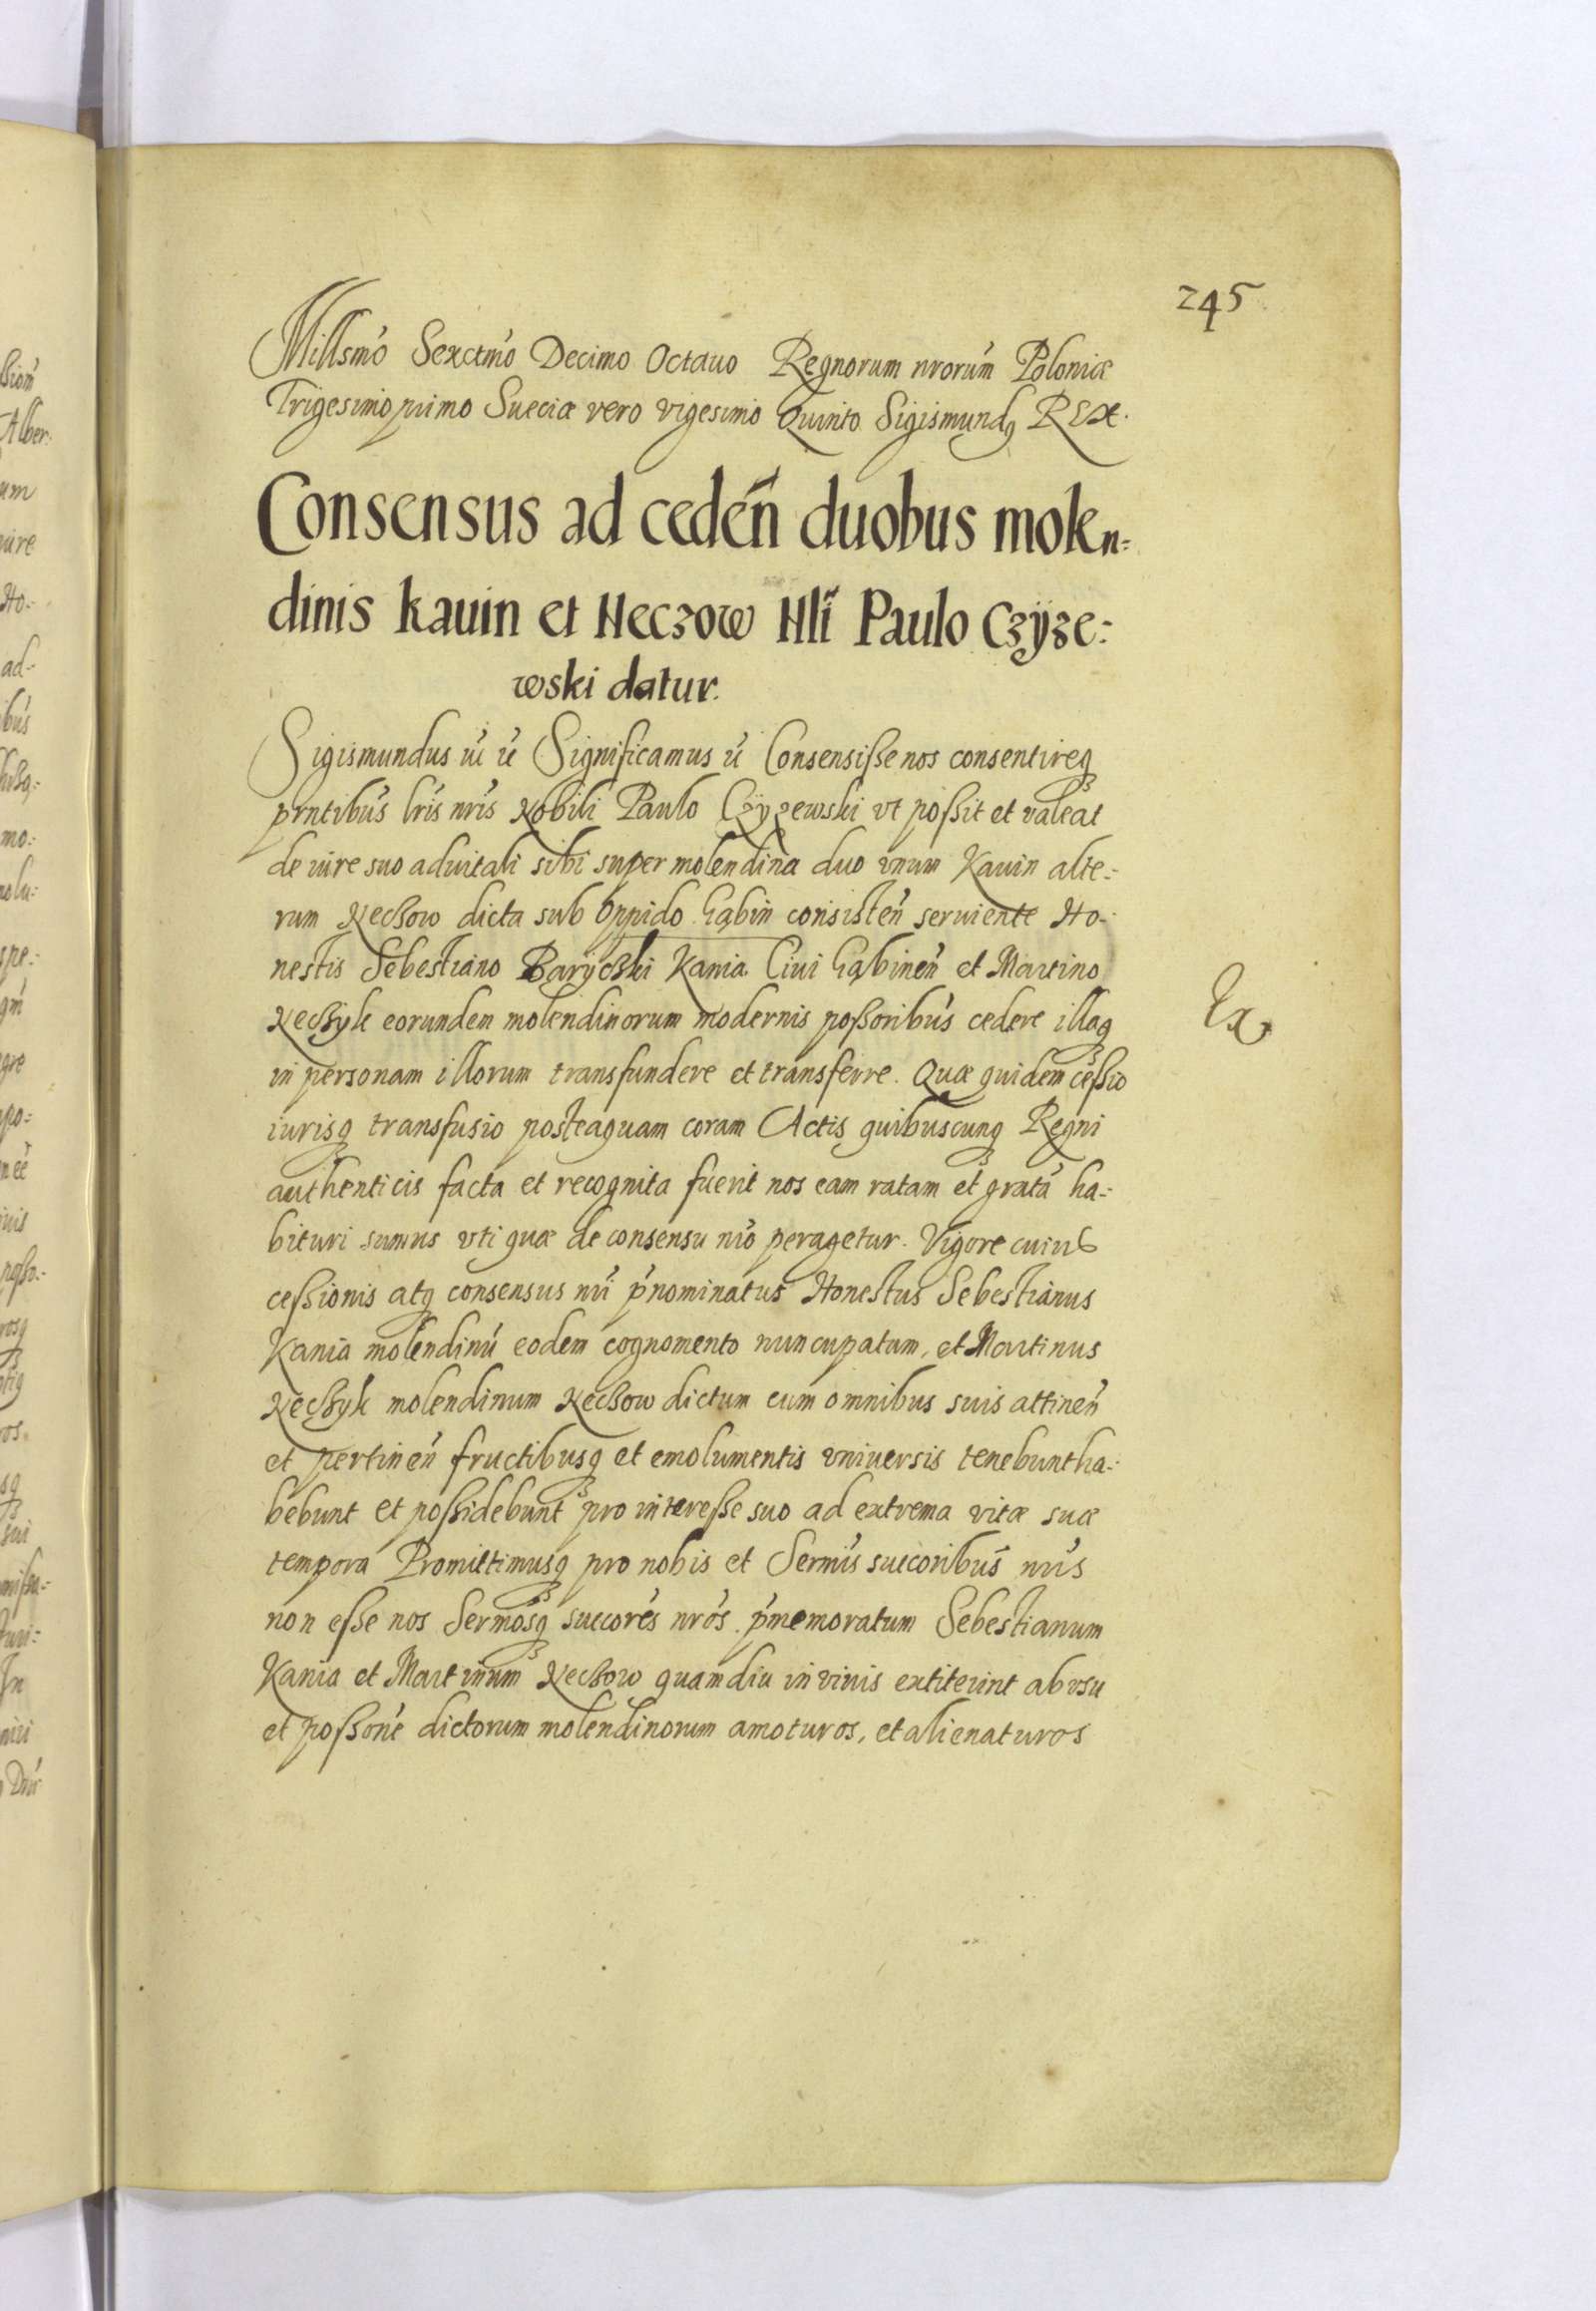 245
Millsmo Sexctmo Decimo Octauo Regnorum nrorum Poloniæ
Trigesimo primo Sueciæ vero vigesimo Quinto Sigismundq REX.
Consensus ad cedeñ duobus molen=
dinis kauin et Neczow Nli Paulo Czÿze=
wski datur.
Sigismundus Significamus Consensiſse nos consentireq
prntibus lris nris Nobili Paulo Czÿzewski vt poſsit et valeat
de iure suo aduitali sibi super molendina duo vnum Kauin alte=
rum Neczow dicta sub Oppido Gąbin consisteñ seruiente Ho=
nestis Sebestiano Barÿczki Kania Ciui Gąbineñ et Martino
Neczyk eorundem molendinorum modernis poſsoribus cedere illaq
in personam illorum transfundere et transferre. Quæ quidem ceſsio
iurisq transfusio posteaquam coram Actis quibuscunq Regni
authenticis facta et recognita fuerit nos eam ratam et gratu ha=
bituri sumus vti quæ de consensu nro peragetur. Vigore cuius
ceſsionis atq consensus nri pnominatus Honestus Sebestianus
Kania molendinu eodem cognomento nuncupatum, et Martinus
Neczyk molendinum Neczow dictum cum omnibus suis attineñ
et pertineñ fructibusq et emolumentis vniuersis tenebunt ha=
bebunt et poſsidebunt pro intereſse suo ad extrema vitæ suæ
tempora Promittimusq pro nobis et Sermis succoribus nris
non eſse nos Sermosq succores nros pmemoratum Sebestianum
Kania et Martinum Neczow quamdiu in viuis extiterint ab vsu
et poſsone dictorum molendinorum amoturos, et alienaturos